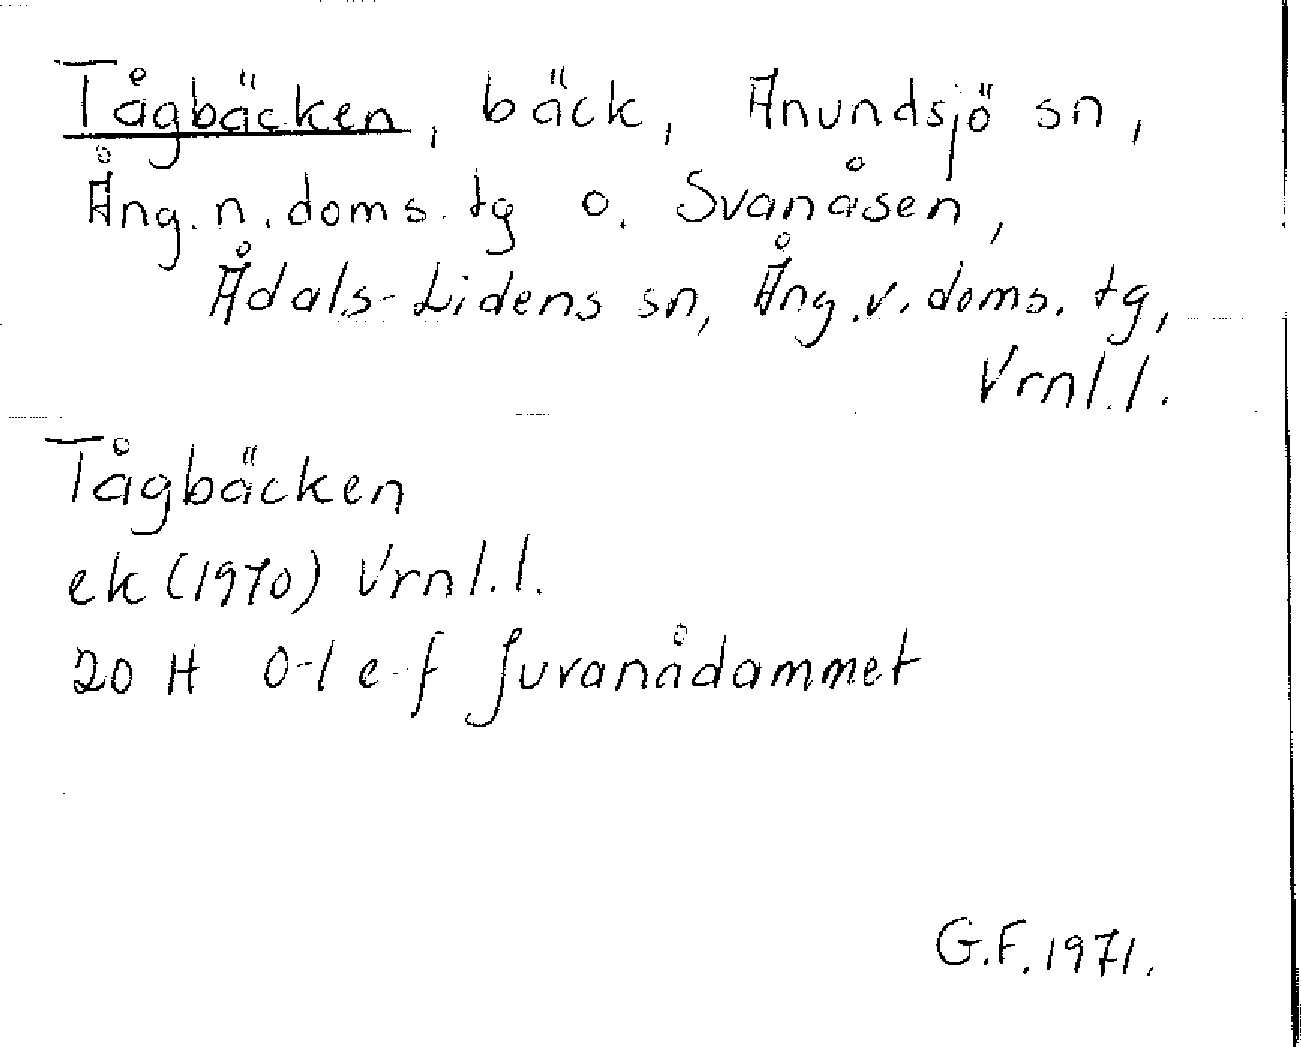 Tågbäcken, bäck, Anundsjö sn,
Ång. n. doms. tg o. Svanåsen,
Ådals-Lidens sn, Ång. v. doms. tg,
Vrnl. l.
Tågbäcken
ek (1970) Vrnl. l.
20 H 0-1 e-f Juvanådammet
G.F. 1971.